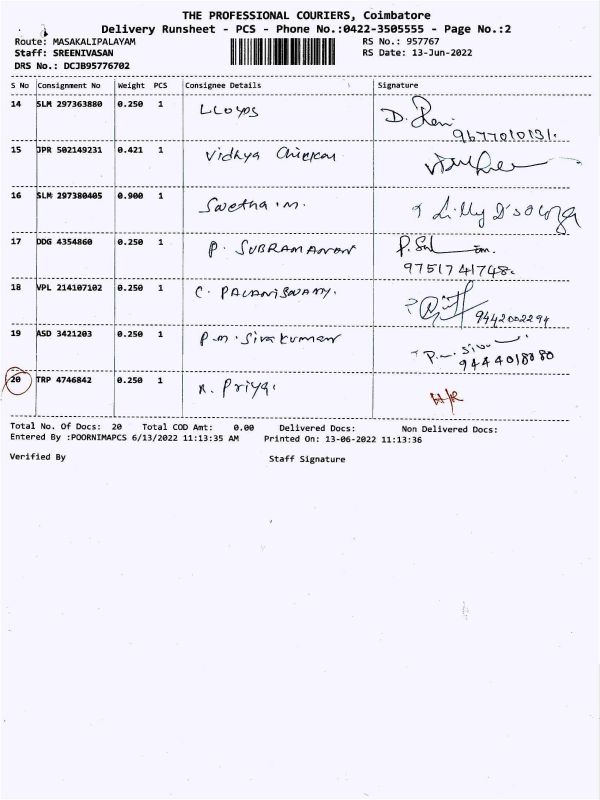 THE PROFESSIONAL COURIERS, Coimbatore
Delivery Runsheet - PCS - Phone No.:0422-3505555 - Page No.:2
Route: MASAKALIPALAYAM RS No.: 957767
Staff: SREENIVASAN RS Date: 13-Jun-2022
DRS No.: DCJB95776702
S No Consignment No Weight PCS Consignee Details Signature
14 SLM 297363880 0.250 1 LLOYDS D.
9677010131.
15 JPR 502149231 0.421 1 Vidhya
16 SLM 297380405 0.900 1 Swetha.m. Lilly D'souza
17 DDG 4354860 0.250 1 P. SUBRAMANIAN P.
9751741748.
18 VPL 214107102 0.250 1 C. PALANISWAMY.
9442002294
19 ASD 3421203 0.250 1 P.m. Sivakumar P.
9444018080
20 TRP 4746842 0.250 1 Priya.
Total No. Of Docs: 20 Total COD Amt: 0.00 Delivered Docs: Non Delivered Docs:
Entered By :POORNIMAPCS 6/13/2022 11:13:35 AM Printed On: 13-06-2022 11:13:36
Verified By Staff Signature